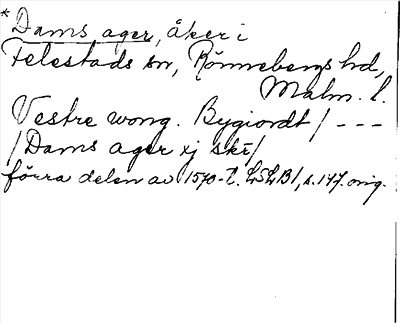 *Dams ager, åker i
Felestads sn, Rönnebergs hd,
Malm. l.
Vestre wong. Bygiordt / - - -
/Dams ager xj skr/
förra delen av 1570-t. LSLB1, s. 147. orig.